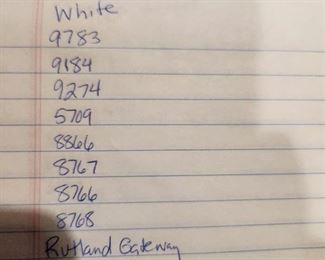 White
9783
9184
9274
5709
8866
8767
8766
8768
Rutland Gateway